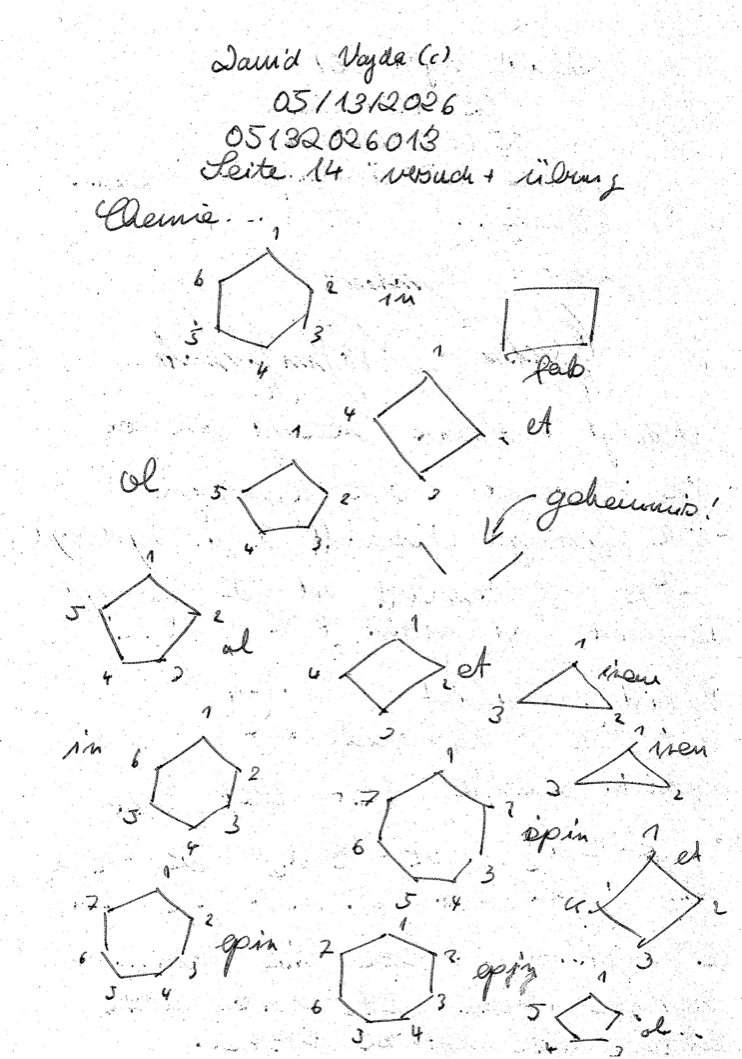 David Vajda (c)
05/13/2026
05132026013
Seite 14 versuch + übung
Chemie...
1
6 2
in
5 3
4
fab
1
4 et
3
ol
1
5 2
4 3
geheimnis!
1
5 2
ol
4 3
1
4 2 et
3
1 iren
3 2
in
1
6 2
5 3
4
1 iren
3 2
1
7 2
epin
6 3
5 4
1 et
4 2
3
1
7 2
epin
6 3
5 4
1
7 2
epin
6 3
5 4
1
5 ol...
4 3